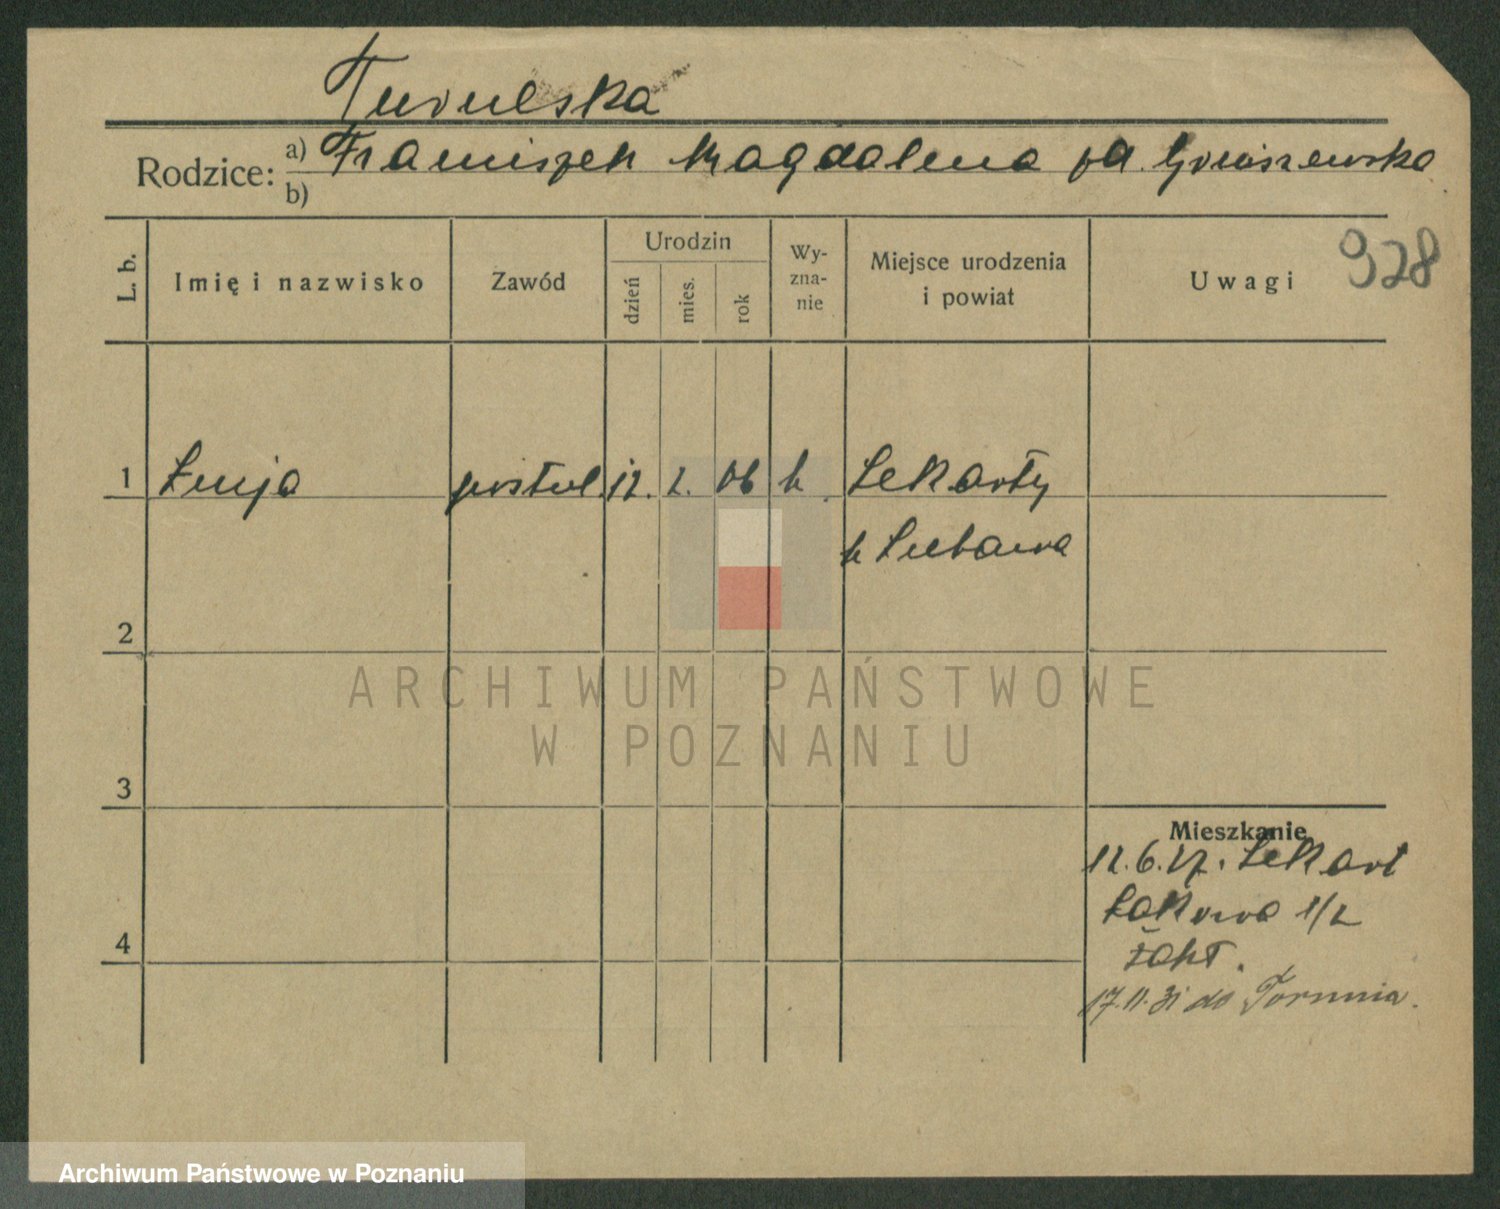 Turulska
Rodzice: a) Franciszek Magdalena
b)
928
L. b.
Imię i nazwisko
Zawód
Urodzin
dzień
mies.
rok
Wy-
zna-
nie
Miejsce urodzenia
i powiat
Uwagi
1 Łucja postul. 12. 2. 06 k. Lekarty
k Lubawa
2
ARCHIWUM PAŃSTWOWE
W POZNANIU
3
Mieszkanie
12.6.27. Lekart
Łąkowa 1/2
zakł.
4
17.11.31 do Torunia.
Archiwum Państwowe w Poznaniu